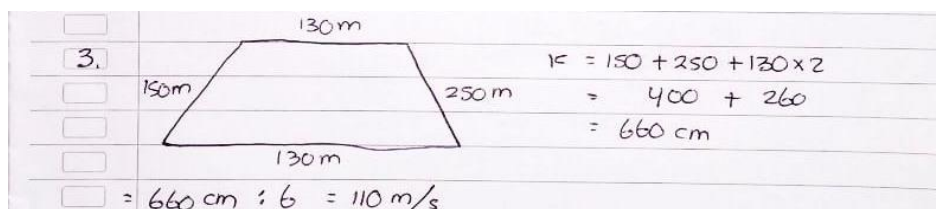 130 m
3.
150m
250 m
130 m
K = 150 + 250 + 130 x 2
= 400 + 260
= 660 cm
= 660 cm : 6 = 110 m/s